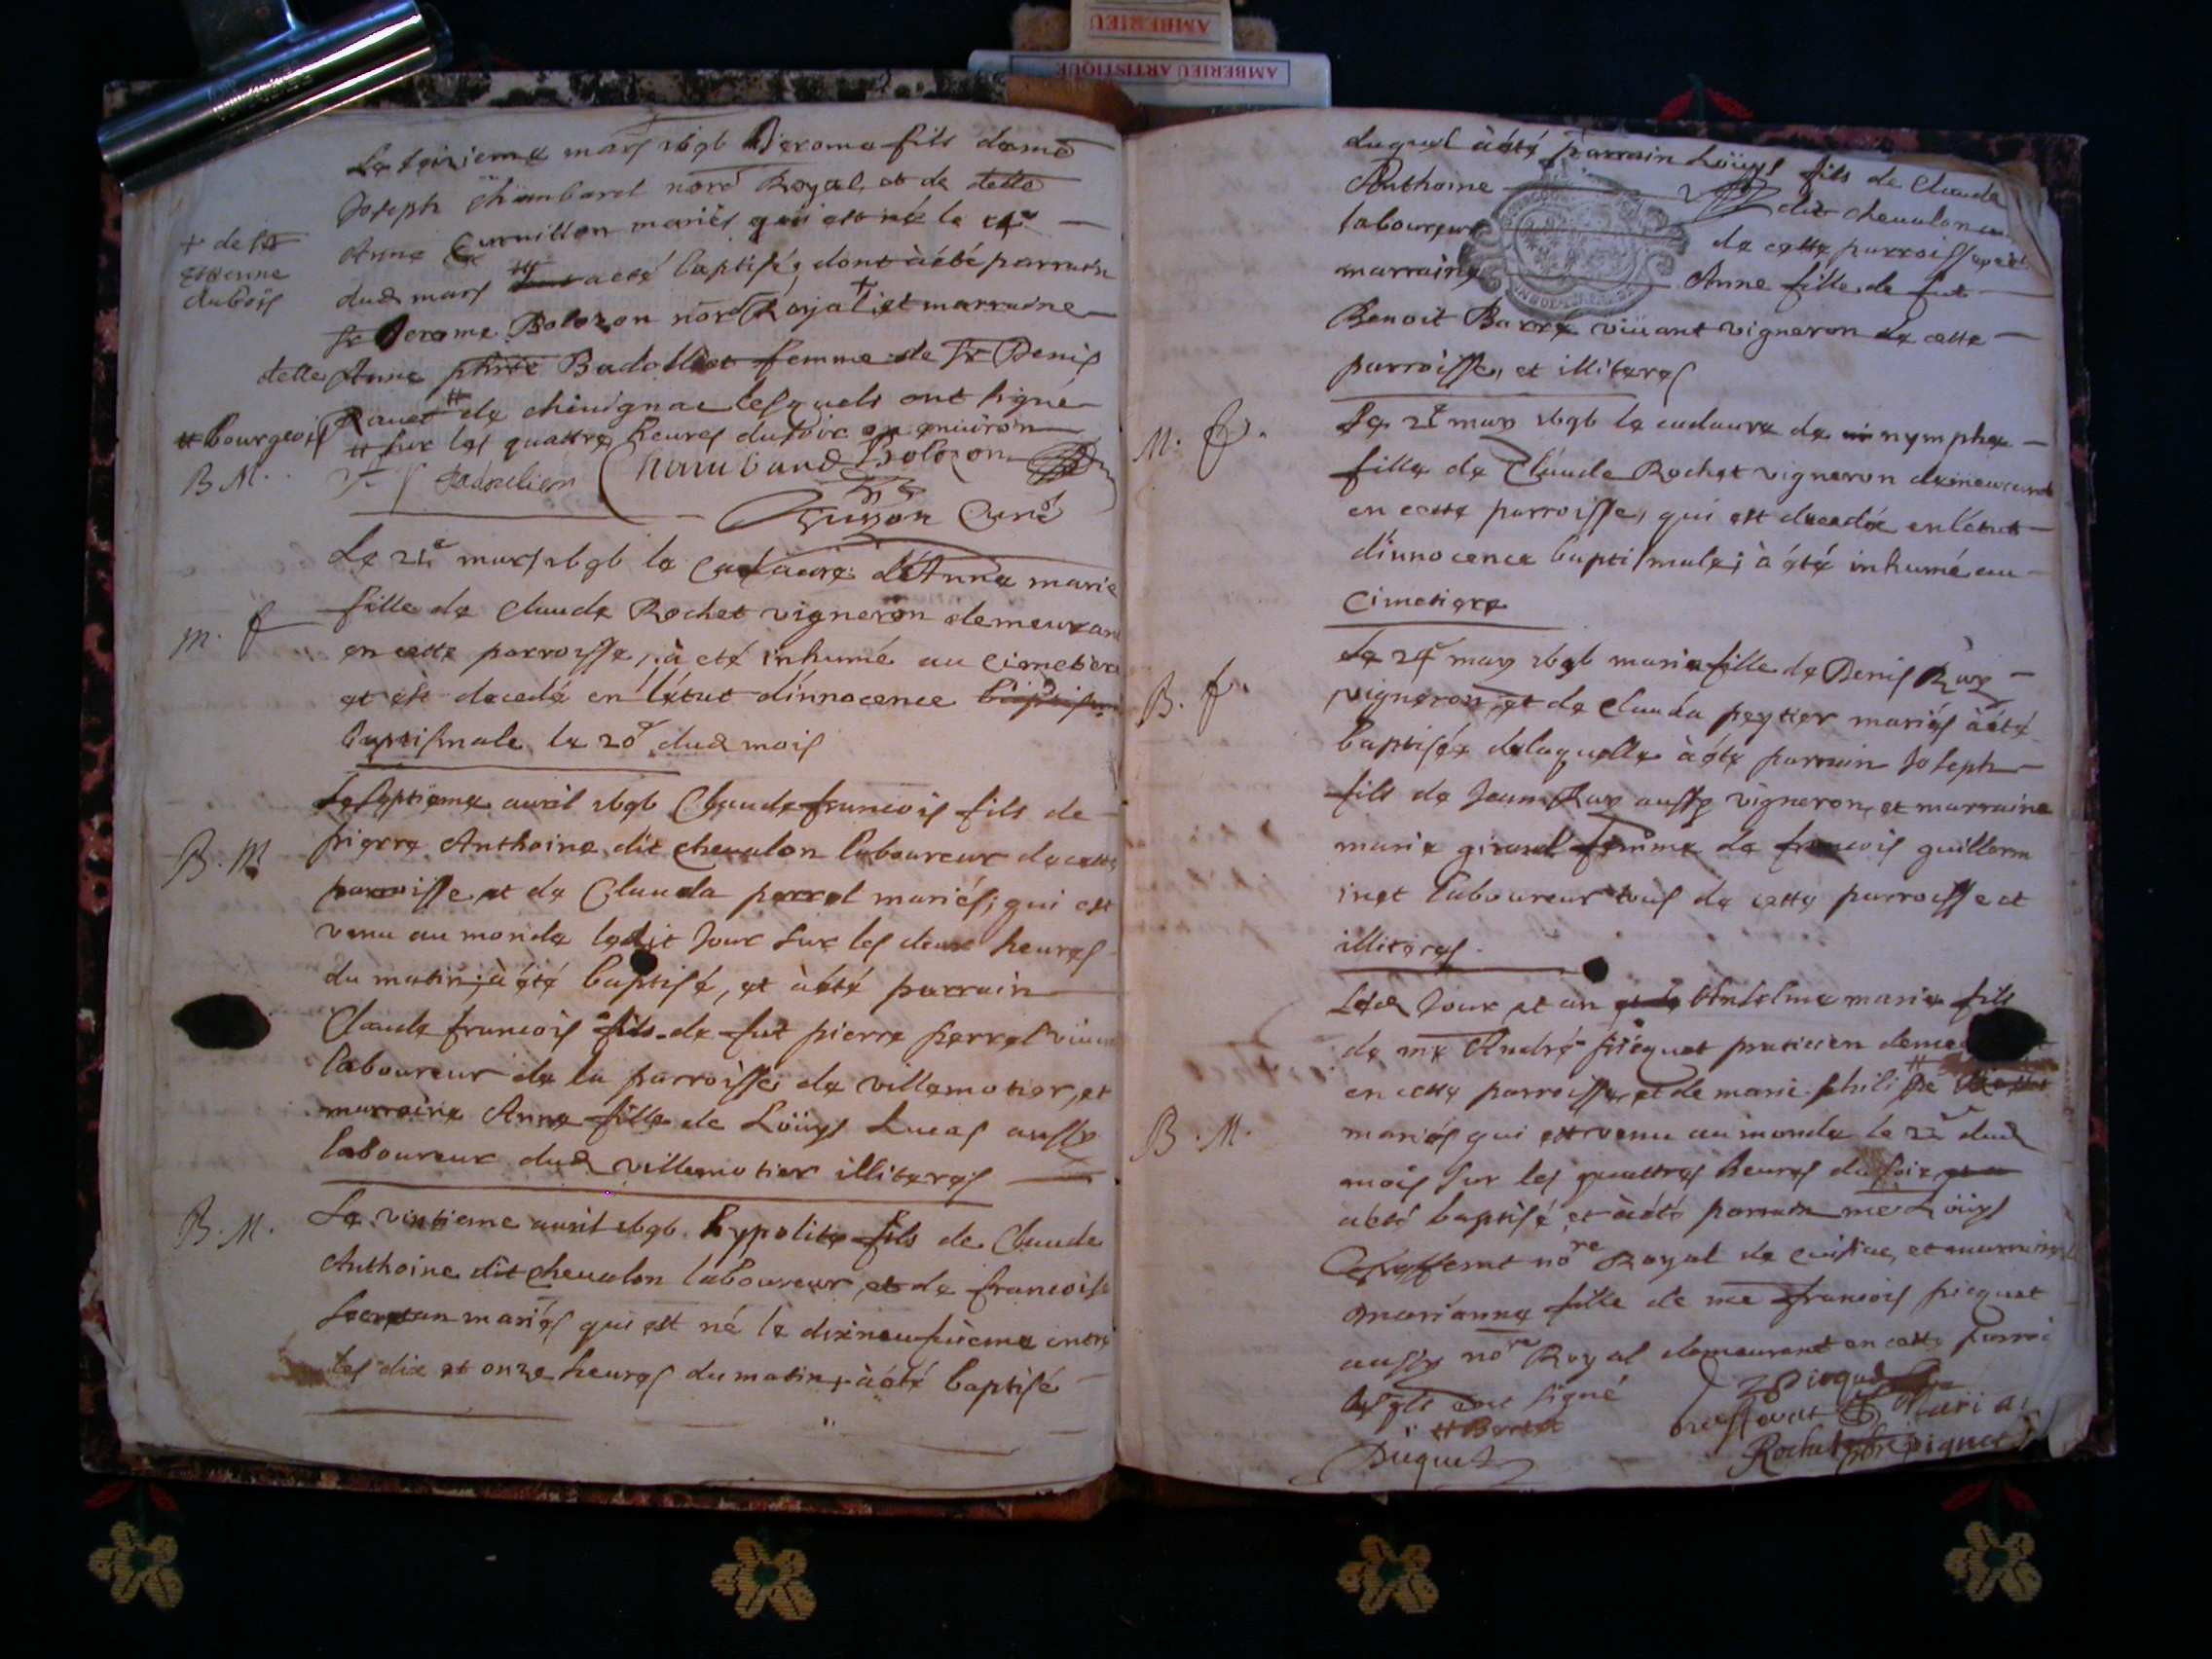 AMBERIEU
AMBERIEU ARTISTIQUE
Le seizieme mars 1696 Jerome fils de me
Joseph Chambard nore Royal, et de delle
Anne Curuillon mariés qui est né le
dud mars a eté baptisé, dont à été parrain
+ de St
estienne
dubois
sr Jerome Bolozon nore Royal + et marraine
delle Anne Badoulliet femme de sr Denis
Rauet # de chauignac lesquels ont signé
# bourgeois
# sur les quattre heures du soir ou enuiron
B. M.
Chambard Bolozon
Curé
Le 21e mars 1696 le Cadaure d'Anne marie
m. f
fille de Claude Rochet vigneron demeurant
en cette parroisse, à eté inhumé au cimetiere
et est decedé en l'état d'innocence
baptismale le 20e dud mois
Le septieme auril 1696 Claude francois fils de
B. M
pierre Anthoine dit cheualon laboureur de cette
parroisse et de Clauda perrel mariés; qui est
venu au monde ledit Jour sur les deux heures
du matin; à été baptisé, et à été parrain
Claude francois fils de fut pierre perrel viuant
laboureur de la parroisse de villemotier, et
marraine Anne fille de Loüys Lucas aussy
laboureur dud villemotier illiteres
B. M.
Le vintieme auril 1696 hypolite fils de Claude
Anthoine dit cheualon laboureur, et de francoise
Secretan mariés qui est né le dixneufuieme entre
les dix et onze heures du matin, à été baptisé
duquel à été parrain Loüys fils de Claude
Anthoine dit cheualon
laboureur de cette parroisse et
marraine Anne fille de fut
Benoit Barre viuant vigneron de cette
parroisse, et illiteres
M. f.
Le 2e may 1696 le cadaure de nymphe
fille de Claude Rochet vigneron demeurant
en cette parroisse, qui est decedée en l'état
d'innocence baptismale; à été inhumé au
Cimetiere
Le 24e may 1696 marie fille de Denis Ruy
B. f.
vigneron, et de Clauda peytier mariés à été
baptisée de laquelle à été parrain Joseph
fils de Jean Ruy aussy vigneron, et marraine
marie girard femme de francois guillerm
inet laboureur tous de cette parroisse et
illiteres.
Led Jour et an Anselme marie fils
de me André picquet praticien
en cette parroisse, et de marie
B. M.
mariés qui est venu au monde le 22e dud
mois sur les quattres heures du soir
a été baptisé et à été parrain me Loüys
nore Royal de cuisiat, et marraine
marianne fille de me francois picquet
aussy nore Royal demeurant en cette parroi
lesqls ont signé
Picquet
Rochet